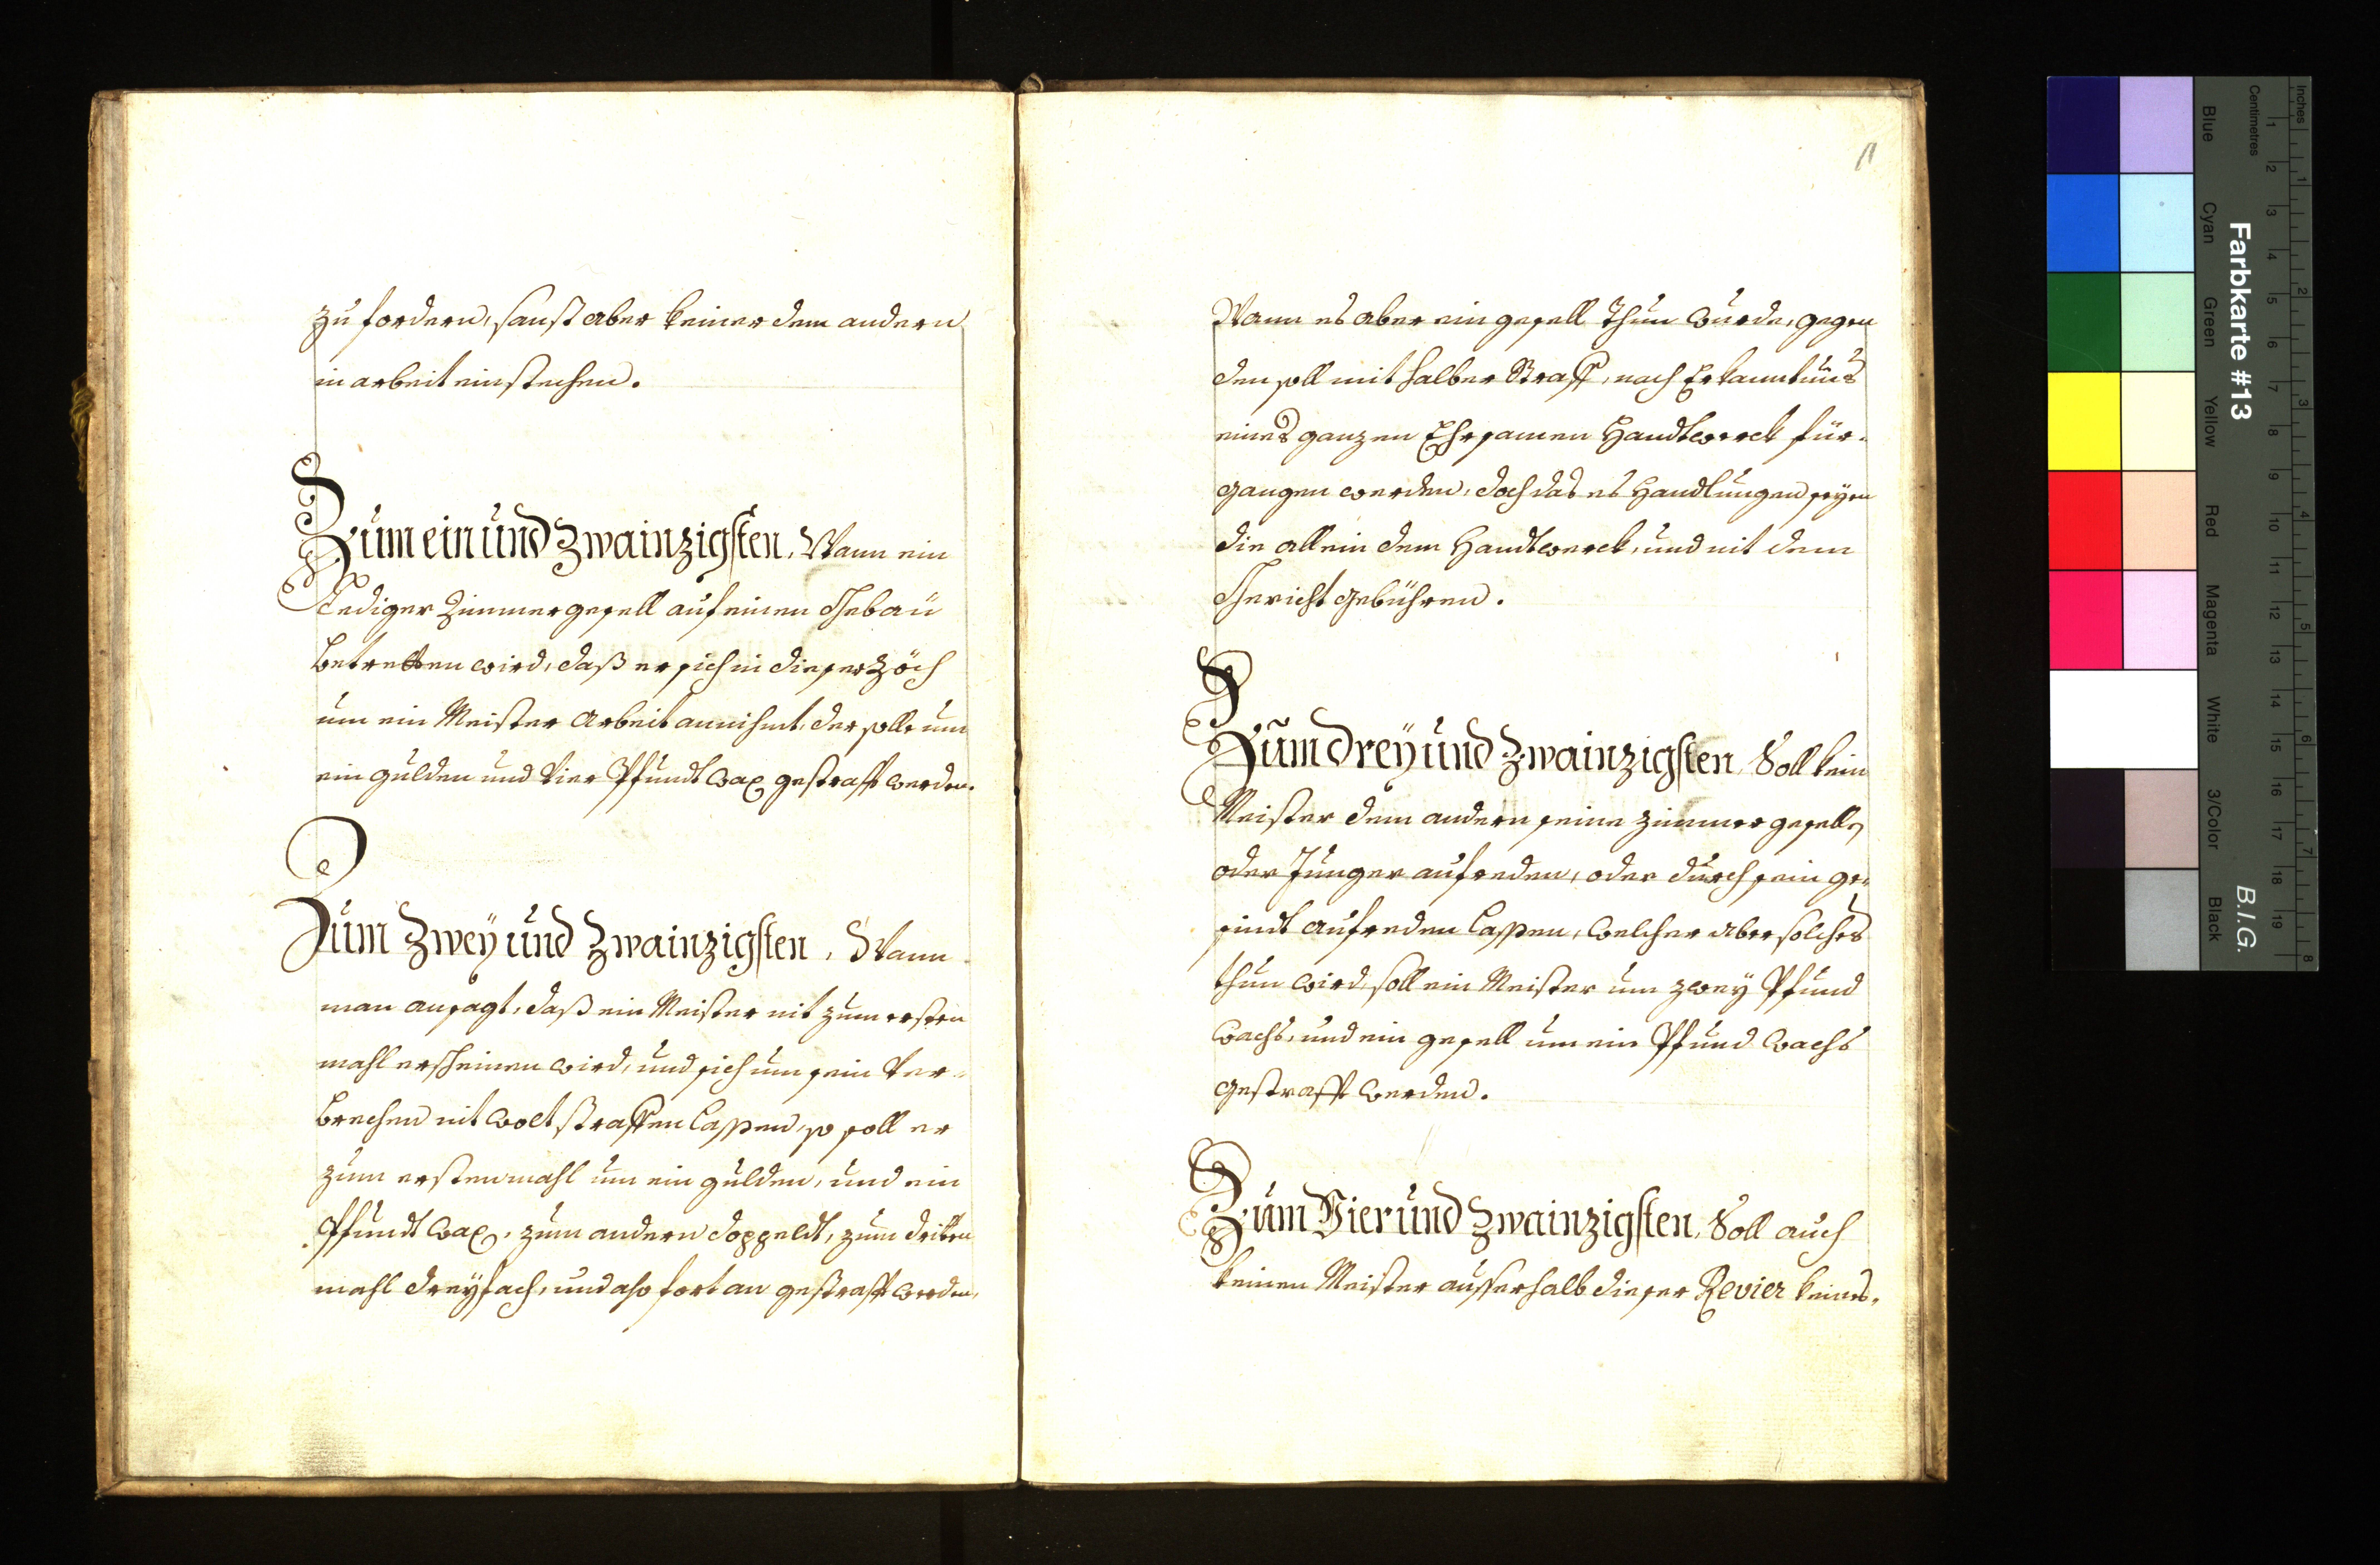 zu fordern, sanst aber keiner dem andern
in arbeit einstechen.
Zum ein und Zwainzigsten, Wann ein
Lediger Zimmergesell auf einen Gebäu
betretten wird, daß er sich in dieser Zöch
um ein Meister Arbeit annihmt, der solle um
ein gulden und vier Pfundt wax gestrafft werden.
Zum Zwey und Zwainzigsten, Wann
man ansagt, daß ein Meister nit zum ersten
mahl erscheinen wird, und sich um sein ver-
brechen nit wolt straffen lassen, so soll er
zum ersten mahl um ein gulden, und ein
Pfundt wax, zum andern doppeldt, zum dritten
mahl dreyfach, und also fort an gestrafft werden,
11
Wann es aber ein gesell thun wurde, gegen
den soll mit halber Straff, nach Erkanntnus
eines ganzen Ehrsamen Handtwerck für-
gangen werden, doch das es Handlungen seyen
die allein dem Handtwerck, und nit dem
Gericht gebühren.
Zum drey und Zwainzigsten, Soll kein
Meister dem andern seine zimmer gesellen
oder Junger aufreden, oder durch sein ge-
sindt aufreden lassen, welcher aber solches
thun wird, soll ein Meister um zwey Pfund
wachs, und ein gesell um ein Pfund wachs
gestrafft werden.
Zum Vier und Zwainzigsten, Soll auch
keinen Meister ausserhalb dieser Revier keines-
Inches
Centimetres
1 2 3 4 5 6 7 8 9 10 11 12 13 14 15 16 17 18 19
1 2 3 4 5 6 7 8
Farbkarte #13
B.I.G.
Blue
Cyan
Green
Yellow
Red
Magenta
White
3/Color
Black